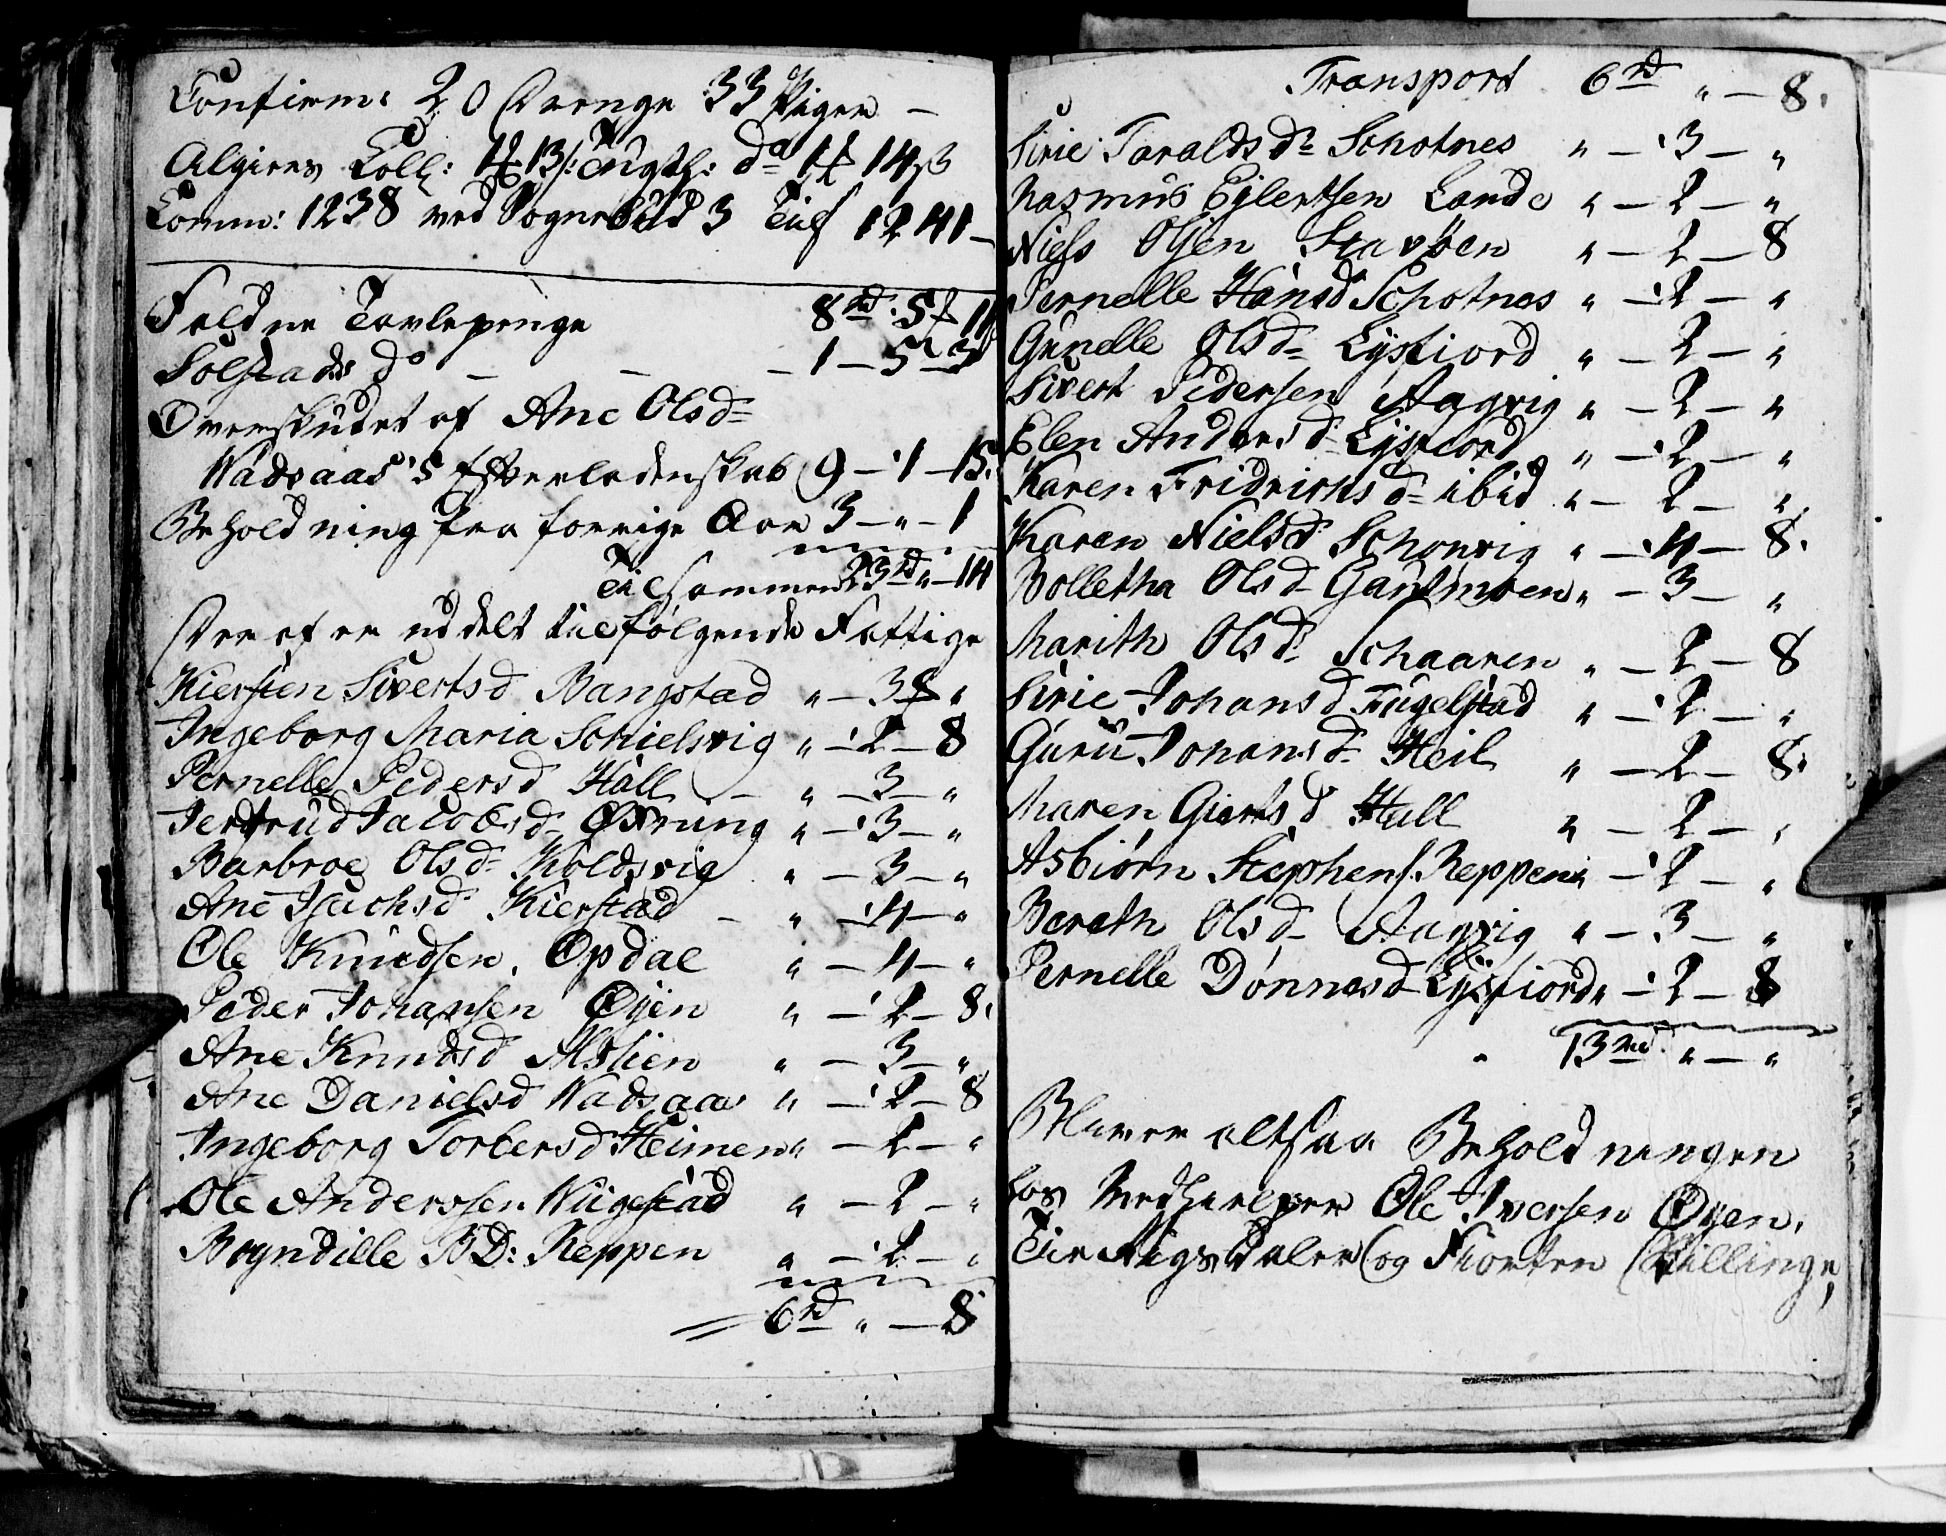 Confirm: 20 Drenge 33 Piger –
Algiers Coll: 4 13/: Tugth: do 4 14 ß
Comm: 1238 ved Sognebud 3 Tils 1241 –
Foldne Tavlepenge 8rd. 5 11
Solstads do – – – 1 – 5 – 3
Overskudet af Ane Olsd=
Wadsaas's Efterladenskab 9 – 1 – 15.
Beholdning fra forrige Aar 3 – " – 1
Tilsammen 23rd " – 14
Der af er uddelt til følgende Fattige
Kiersten Sivertsd Bangstad " – 3 – "
Ingeborg Maria Schielsvig " – 2 – 8
Pernelle Pedersd Hall – " – 3 – "
Jertrud Jacobsd= " – 3 – "
Barbroe Olsd= Koldsvig " – 3 – "
Ane Isachsd Kierstad – " – 4 – "
Ole Knudsen Opdal " – 4 – "
Peder Johansen Øyen " – 2 – 8.
Ane Knudsd Mslien " – 3 – "
Ane Danielsd Wadsaas " – 2 – 8
Ingeborg Torbersd Heimen " – 2 – "
Ole Anderssen Wiigestad " – 2 – "
Boyndille BD: Reppen " – 2 – "
6rd " – 8
Transport 6rd " – 8.
Sirie Taraldsd= Schotnes " – 3 – "
Rasmus Eylertsen Lande " – 2 – "
Niels Olsen Stavøen " – 2 – 8
Pernelle Hansd Schotnes " – 2 – "
Gunelle Olsd= Lysfiord " – 2 – "
Sivert Pedersen Aagvig " – 2 – "
Elen Andersd= Lysfiord " – 2 – "
Karen Fridrichsd= ibid " – 2 – "
Karen Nielsd Schonvig " – 4 – 8.
Bolletha Olsd= Gantmoen " – 3 – "
Marith Olsd= Schaaren " – 2 – 8
Sirie Johansd Fugelstad " – 2 – "
Guru Johansd= Heil " – 2 – 8.
Maren Giertsd Hall " – 2 – "
Asbiørn Stephens: Reppen " – 2 – "
Bereth Olsd= Aagvig " – 3 – "
Pernelle Dønnesd= Lysfiord " – 2 – 8
13rd " – "
Bliver altsaa Beholdningen
hos Medhielper Ole Iversen Øyen,
Tie Rigsdaler og Fiorten Skillinge,